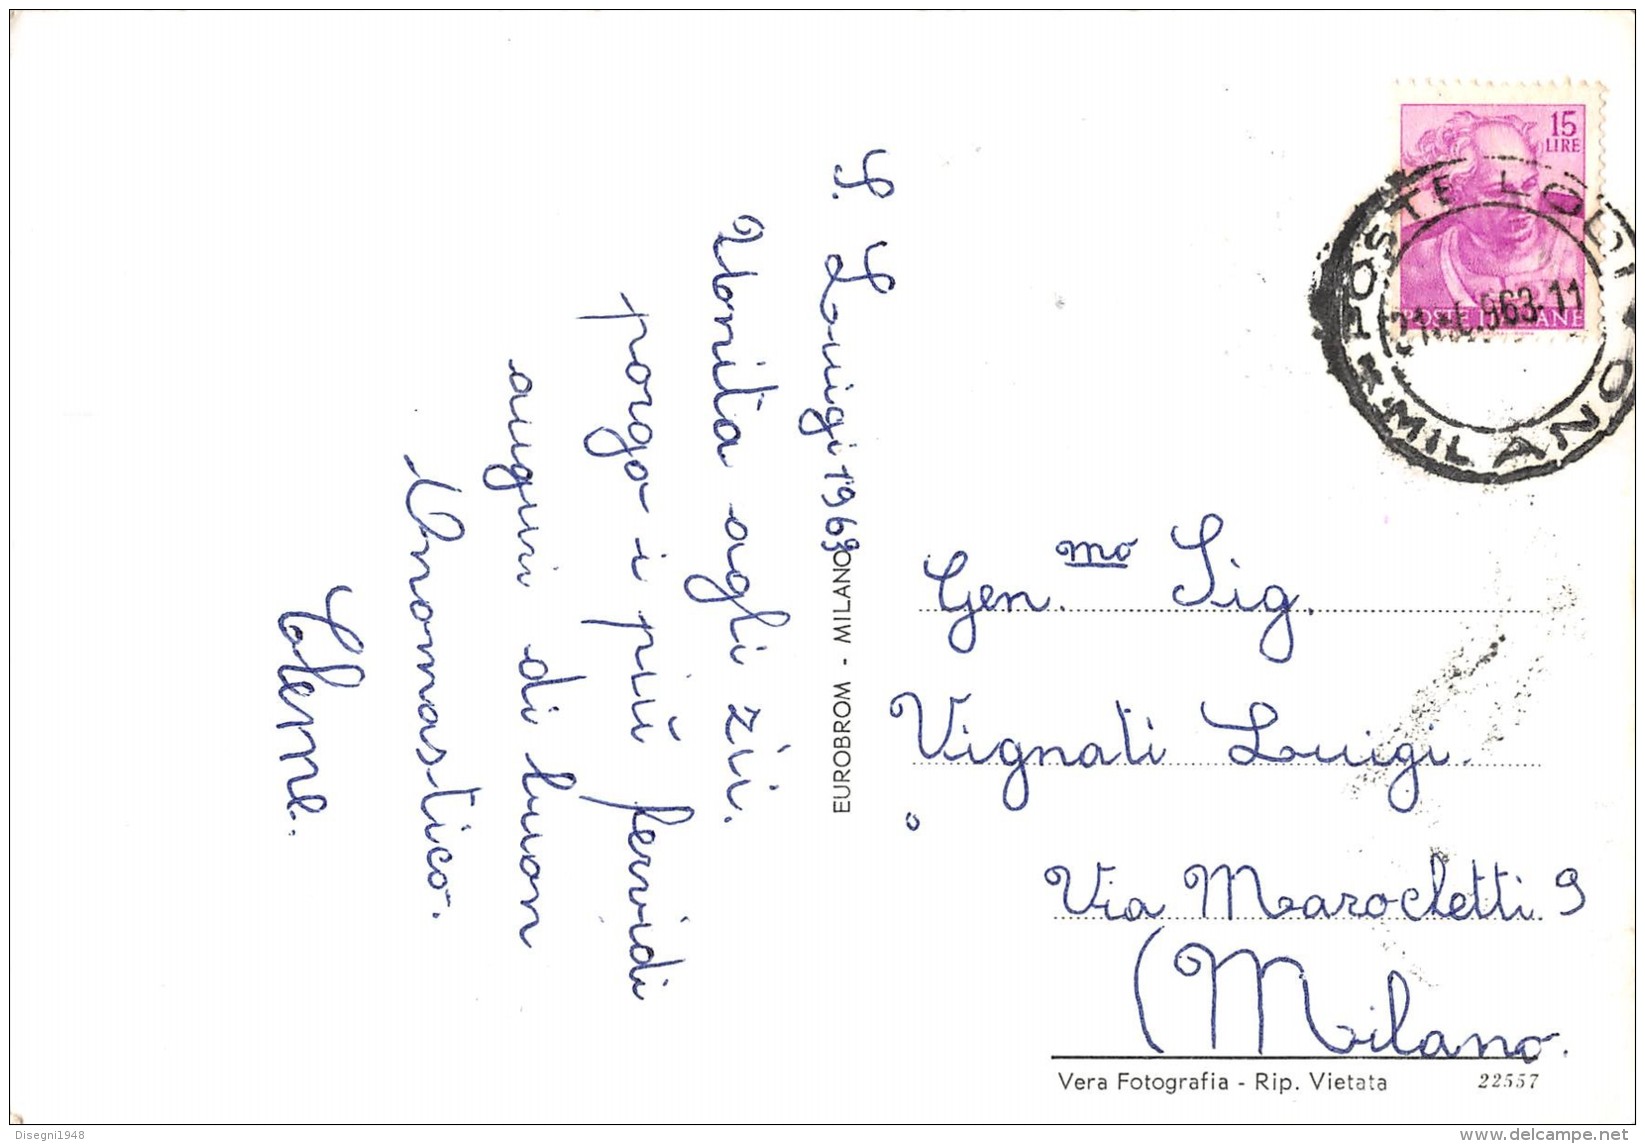 S. Luigi 1963
Unita agli zii.
porgo i più fervidi
auguri di buon
Onomastico.
EUROBROM - MILANO
15
LIRE
POSTE ITALIANE
POSTE LODI
MILANO
Gen.mo Sig.
Vignati Luigi.
Via Marochetti 9
(Milano.
Vera Fotografia - Rip. Vietata 22557
Disegni1948
delcampe.net